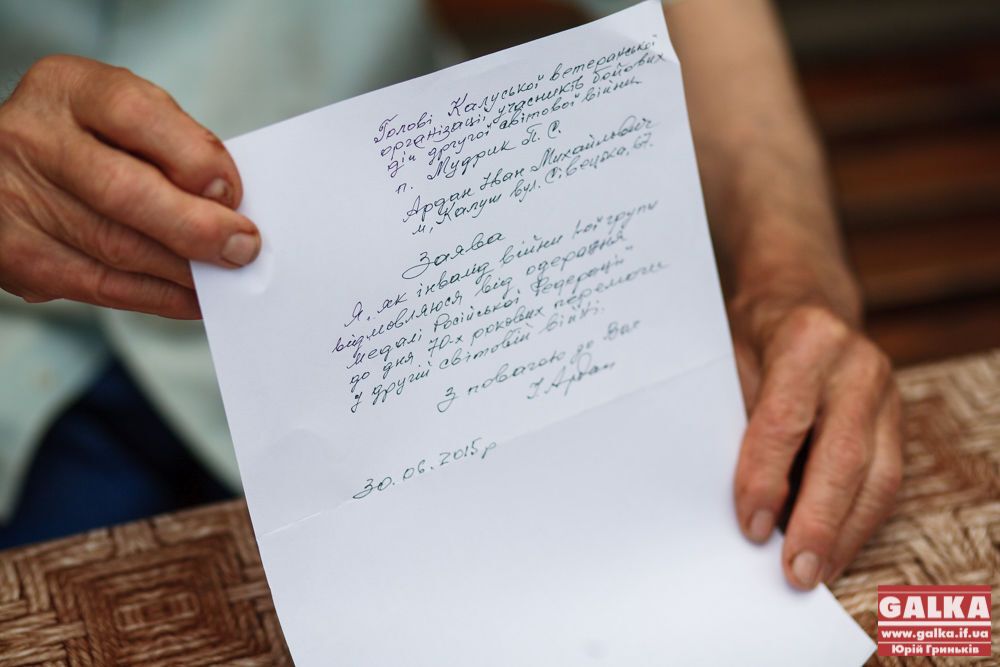 Голові Калуської ветеранської
організації учасників бойових
дій другої світової війни
п. Мудрик П. С.
Ардан Іван Михайлович
м, Калуш вул. 67.
Заява
Я, як інвалід війни ІОЇ групи
відмовляюся від одерання
медалі Російської Федерації
до дня 70-х рокових перемоги
у другій світовій війні.
З повагою до Вас
І Ардан
30.06.2015р
GALKA
www.galka.if.ua
Юрій Гриньків